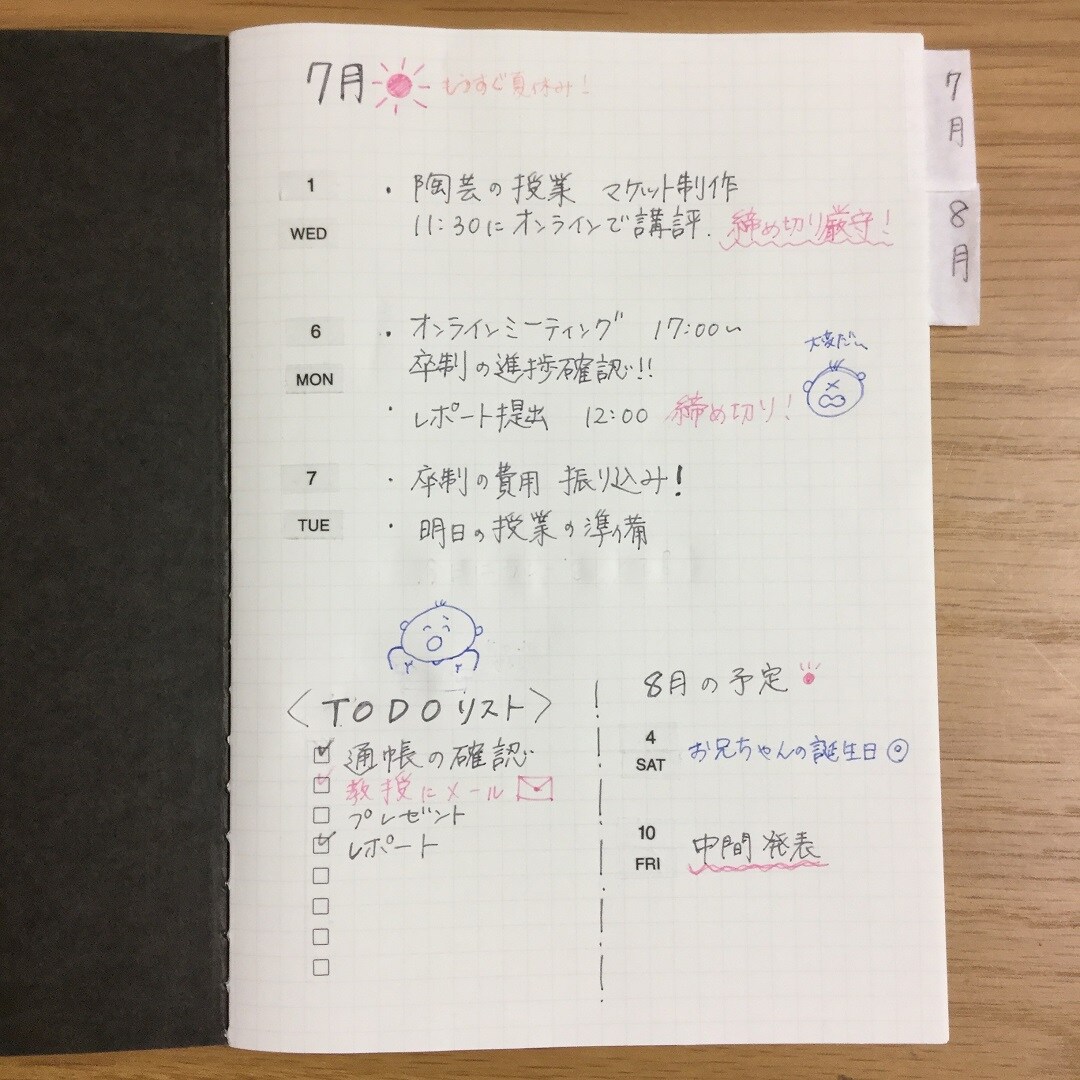 7月 もうすぐ夏休み!
7月
8月
1
WED
・陶芸の授業 マケット制作
11:30にオンラインで講評. 締め切り厳守!
6
MON
・オンラインミーティング 17:00〜
卒制の進捗確認!!
・レポート提出 12:00 締め切り!
大変だ〜
7
TUE
・卒制の費用 振り込み!
・明日の授業の準備
〈TODOリスト〉
☑ 通帳の確認
☑ 教授にメール
☐ プレゼント
☑ レポート
☐
☐
☐
☐
8月の予定
4
SAT
お兄ちゃんの誕生日
10
FRI
中間発表